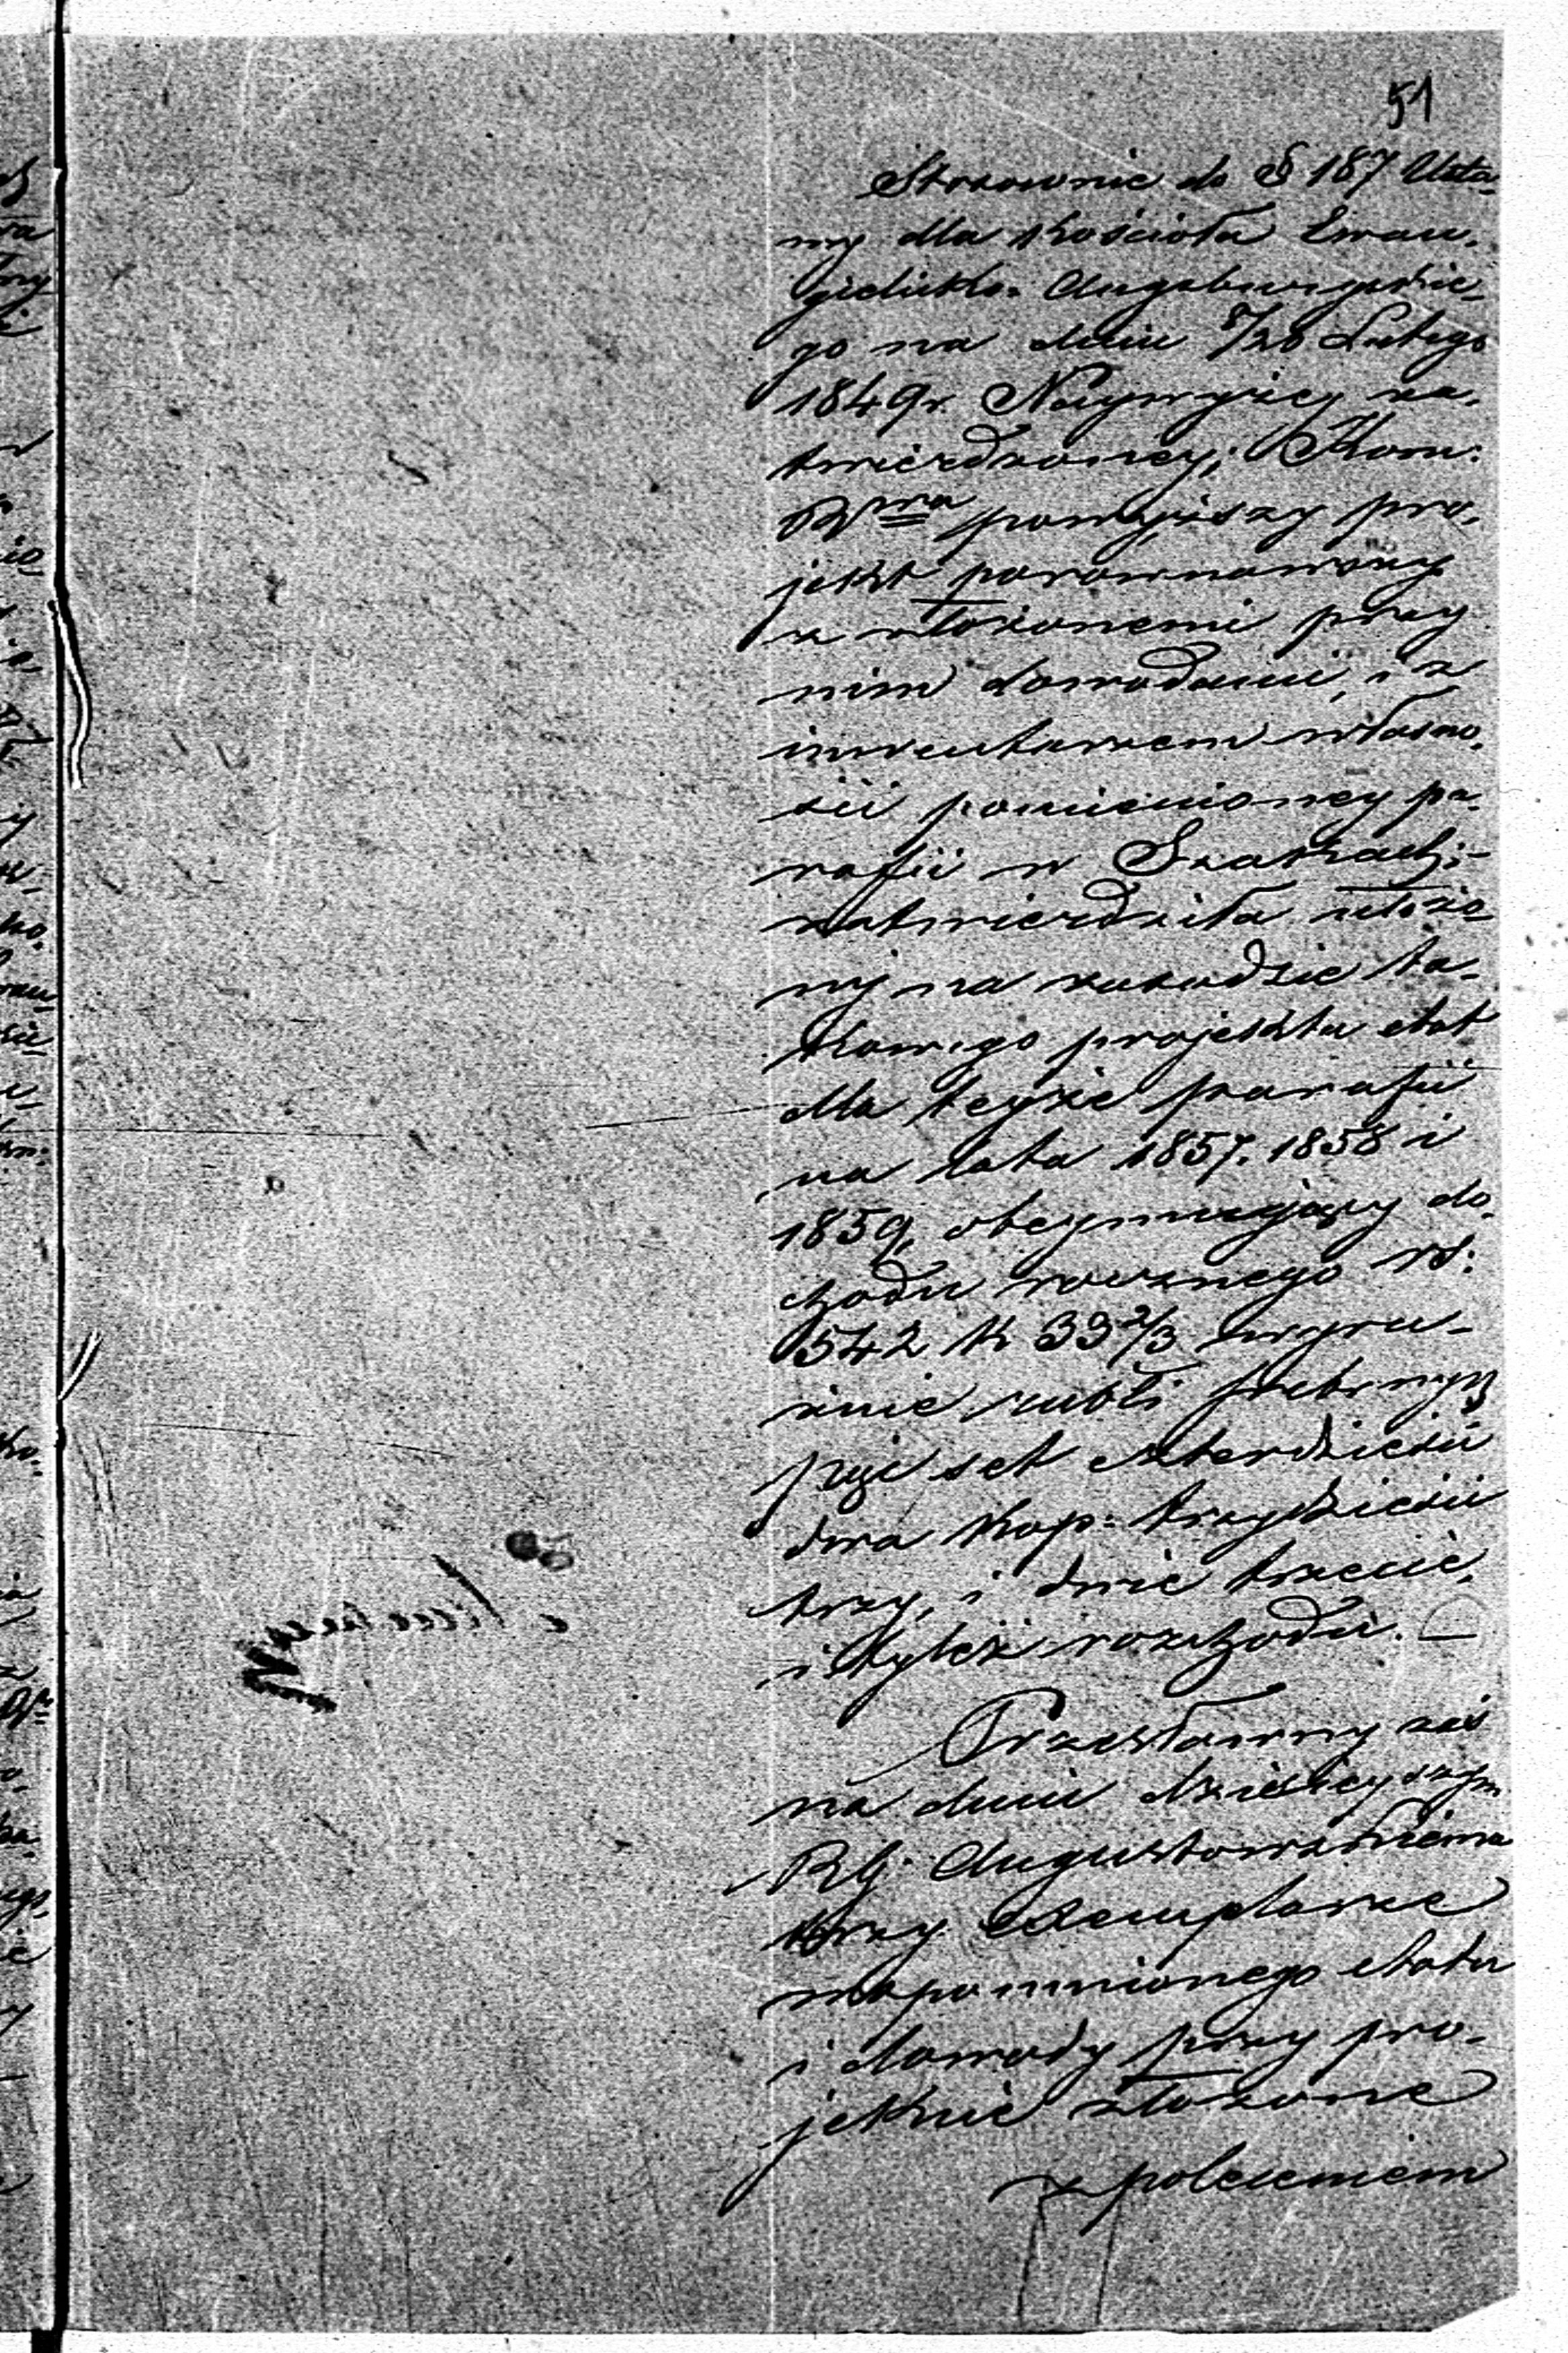 51
Stosownie do § 187 Usta-
wy dla Kościoła Ewan-
gielicko-Augsburgskie-
go na dniu 8/20 Lutego
1849 r. Naywyżey za-
twierdzoney; Kom:
Rwa powyższy pro-
jekt porownawszy
z złożonemi przy
nim dowodami, i z
inwentarzem własno-
ści pomienioney pa-
rafii w Szakach;-
zatwierdziła ułożo
ny na zasadzie ta-
kowego projektu etat
dla teyże parafii
na lata 1857. 1858 i
1859, obeymujący do-
chodu rocznego rs:
542 k 33 2/3 wyra-
źnie rubli srebrnych
pięć set czterdzieści
dwa kop: trzydzieści
trzy, i dwie trzecie,
i tyleż rozchodu.
Przesławszy zaś
na dniu dzisieyszym
RG. Augustowskiemu
trzy exemplarze
wspomnionego etatu
i dowody przy pro-
jekcie złożone
z poleceniem